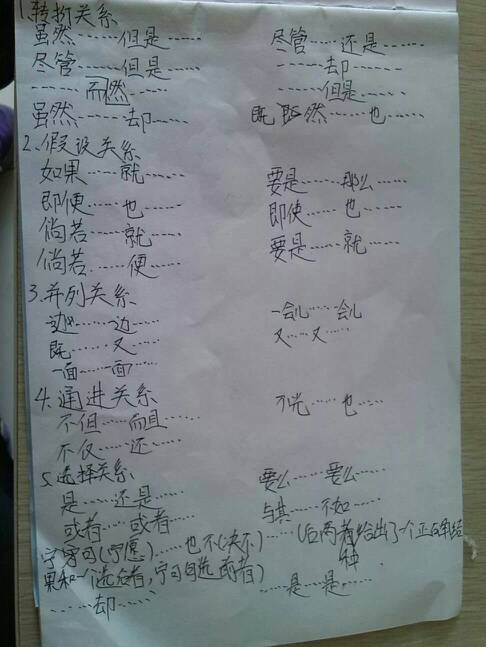 1.转折关系
虽然……但是…… 尽管……还是……
尽管……但是…… ……却……
……而然…… ……但是……
虽然……却…… 既 既然……也……
2.假设关系
如果……就…… 要是……那么……
即便……也…… 即使……也……
倘若……就…… 要是……就……
倘若……便……
3.并列关系
边……边…… 一会儿……会儿
既……又…… 又……又……
一面……面……
4.通进关系
不但……而且…… 不光……也……
不仅……还……
5.选择关系 要么……要么……
是……还是…… 与其……不如……
或者……或者……
宁可(宁愿)……也不(决不)……(后两者给出了一个正
果和一个选者,宁可 选 者)
种
……是……是……
……却……